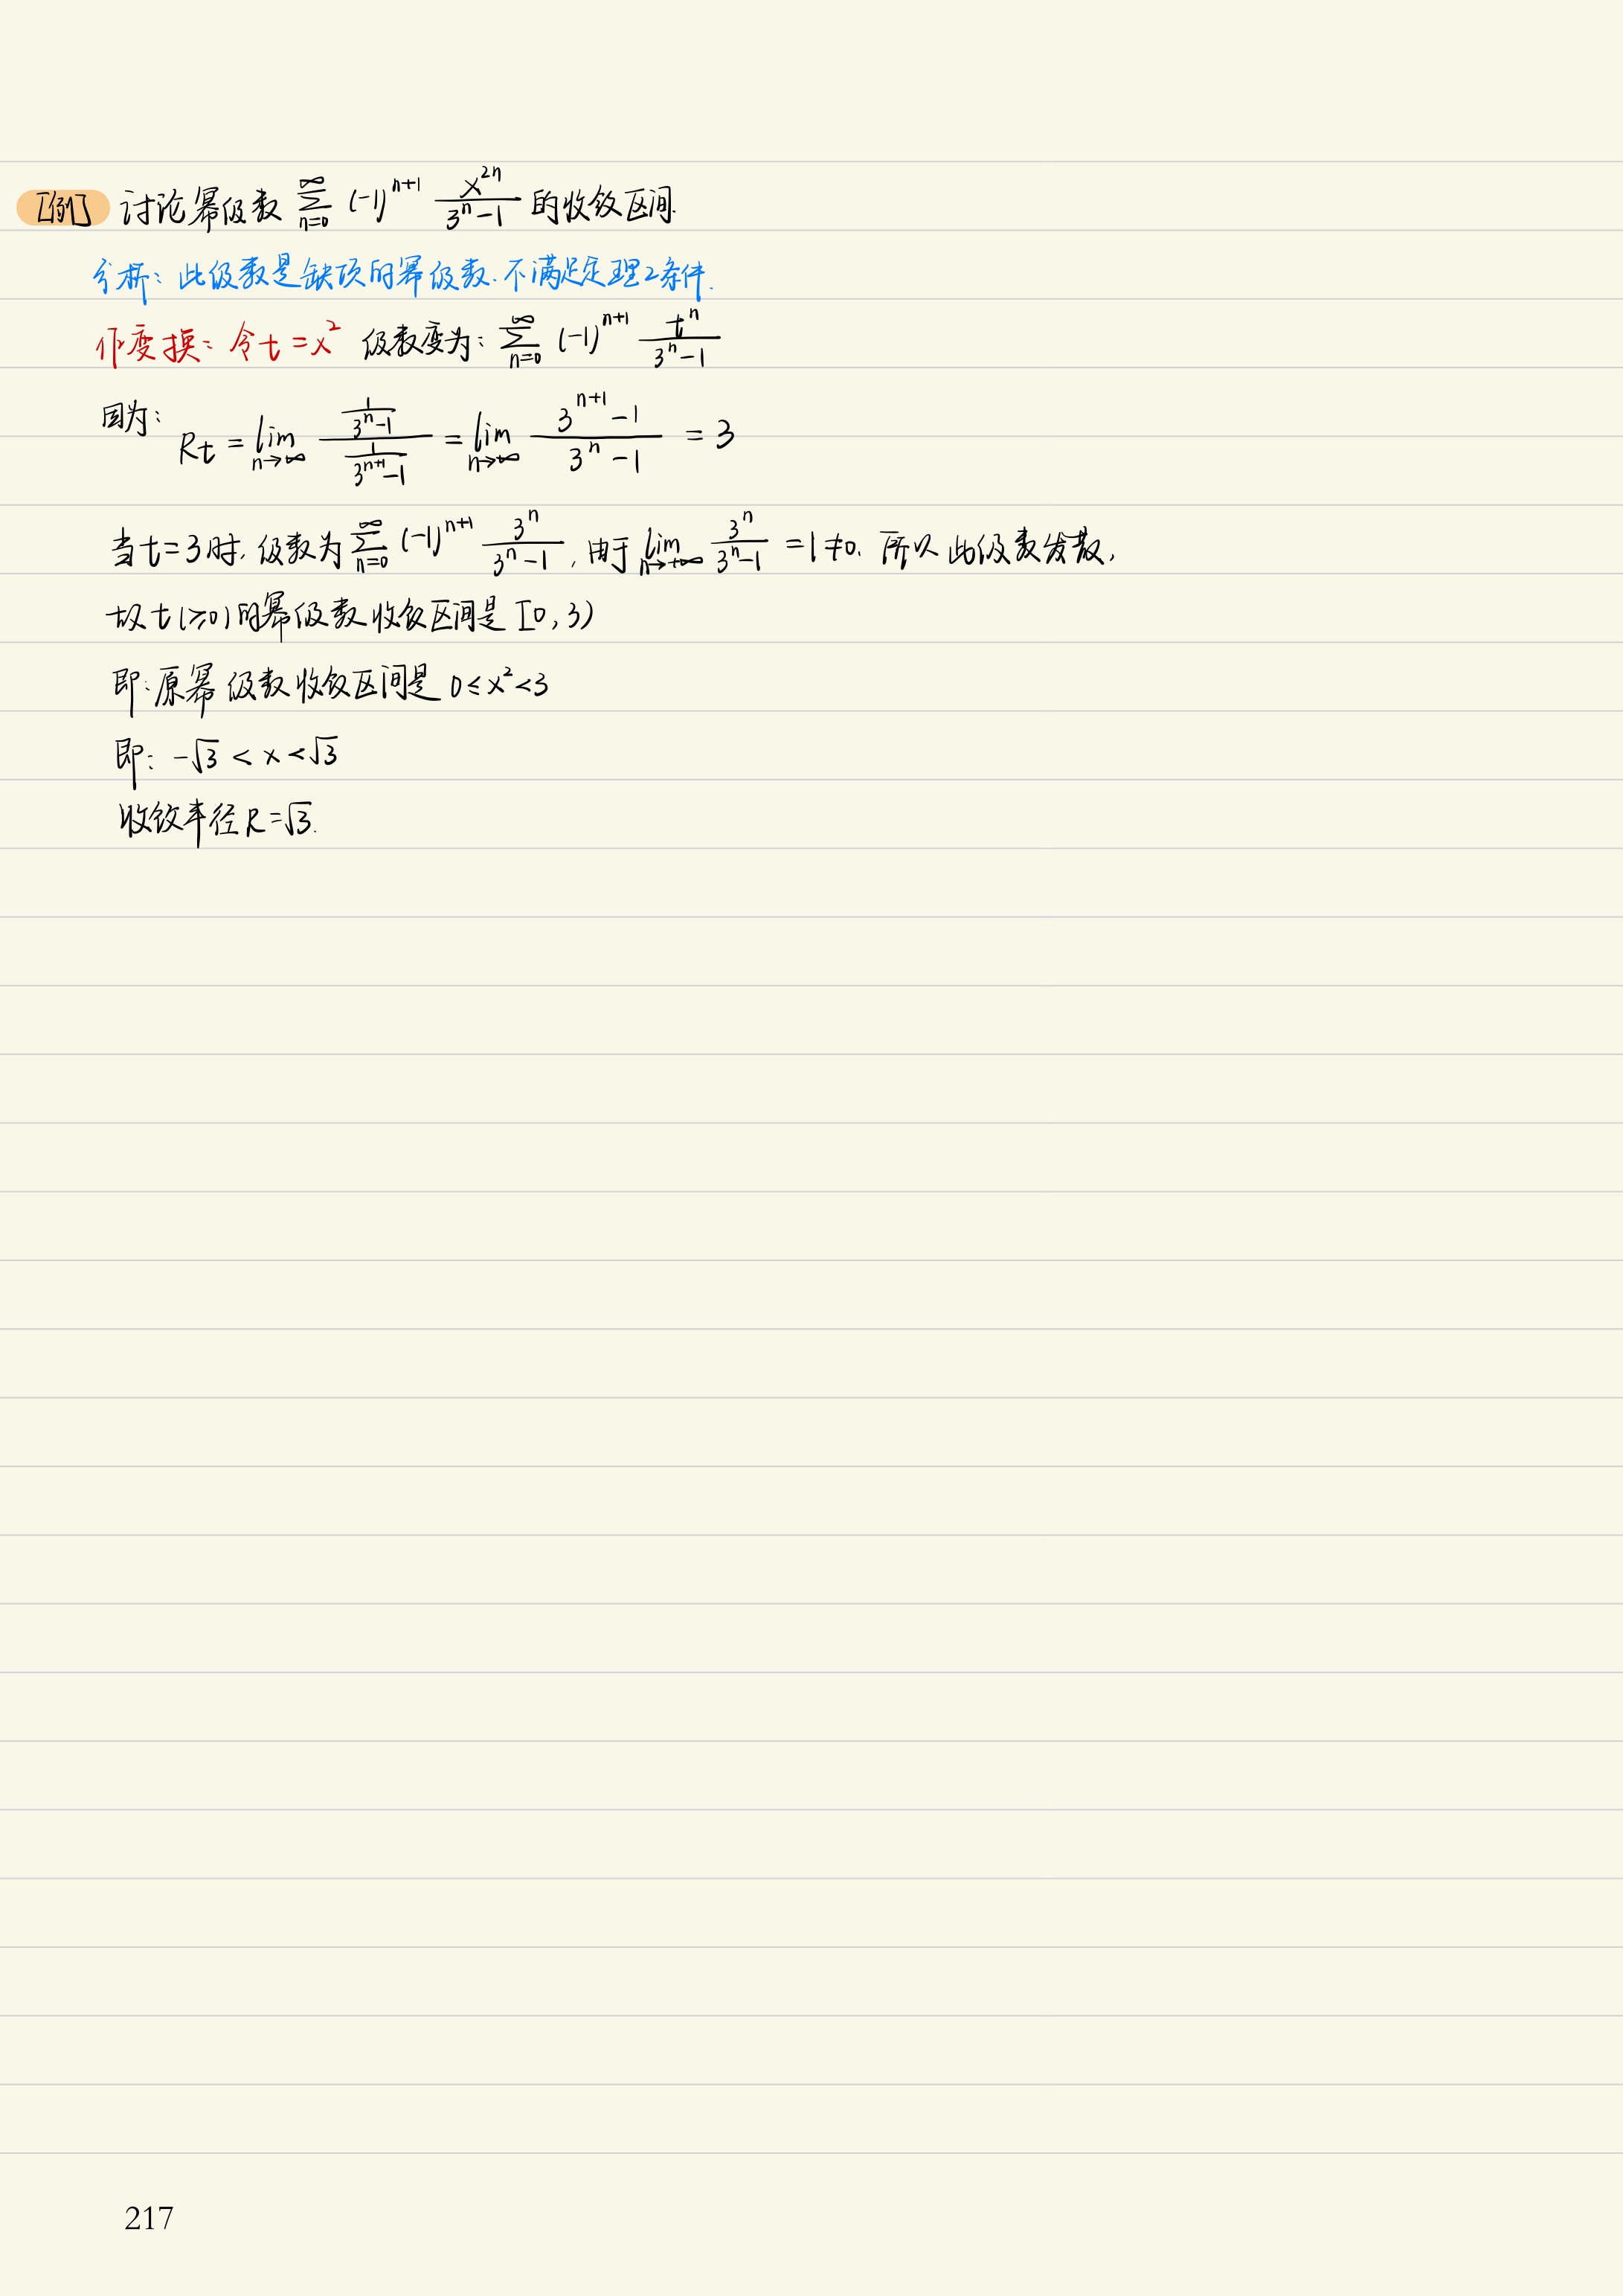 [例] 讨论幂级数 $\sum_{n=0}^{\infty} (-1)^{n+1} \frac{x^{2n}}{3^n-1}$ 的收敛区间.
分析: 此级数是缺项的幂级数. 不满足定理2条件.
作变换: 令 $t=x^2$ 级数变为: $\sum_{n=0}^{\infty} (-1)^{n+1} \frac{t^n}{3^n-1}$
因为: $R_t = \lim_{n\to\infty} \frac{\frac{1}{3^n-1}}{\frac{1}{3^{n+1}-1}} = \lim_{n\to\infty} \frac{3^{n+1}-1}{3^n-1} = 3$
当 $t=3$ 时, 级数为 $\sum_{n=0}^{\infty} (-1)^{n+1} \frac{3^n}{3^n-1}$, 由于 $\lim_{n\to+\infty} \frac{3^n}{3^n-1} = 1 \neq 0$. 所以此级数发散,
故 $t(\geq 0)$ 的幂级数收敛区间是 $[0, 3)$
即: 原幂级数收敛区间是 $0 \leq x^2 < 3$
即: $-\sqrt{3} < x < \sqrt{3}$
收敛半径 $R=\sqrt{3}$.
217